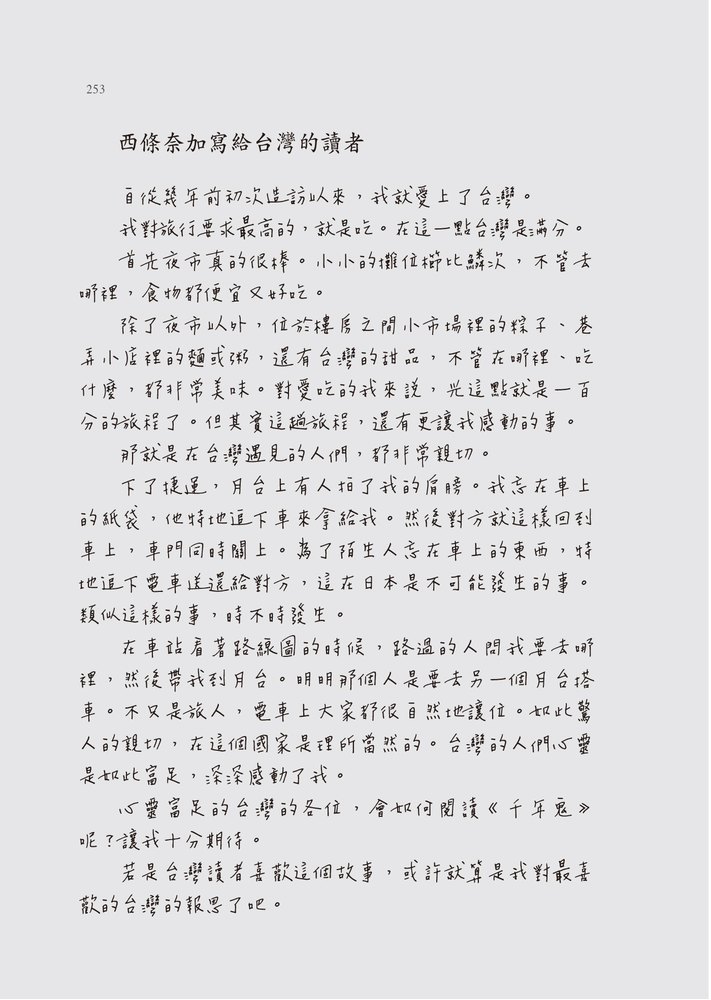 253
西條奈加寫給台灣的讀者
自從幾年前初次造訪以來，我就愛上了台灣。
我對旅行要求最高的，就是吃。在這一點台灣是滿分。
首先夜市真的很棒。小小的攤位櫛比鱗次，不管去
哪裡，食物都便宜又好吃。
除了夜市以外，位於樓房之間小市場裡的粽子、巷
弄小店裡的麵或粥，還有台灣的甜品，不管在哪裡、吃
什麼，都非常美味。對愛吃的我來說，光這點就是一百
分的旅程了。但其實這趟旅程，還有更讓我感動的事。
那就是在台灣遇見的人們，都非常親切。
下了捷運，月台上有人拍了我的肩膀。我忘在車上
的紙袋，他特地追下車來拿給我。然後對方就這樣回到
車上，車門同時關上。為了陌生人忘在車上的東西，特
地追下電車送還給對方，這在日本是不可能發生的事。
類似這樣的事，時不時發生。
在車站看著路線圖的時候，路過的人問我要去哪
裡，然後帶我到月台。明明那個人是要去另一個月台搭
車。不又是旅人，電車上大家都很自然地讓位。如此驚
人的親切，在這個國家是理所當然的。台灣的人們心靈
是如此富足，深深感動了我。
心靈富足的台灣的各位，會如何閱讀《千年鬼》
呢？讓我十分期待。
若是台灣讀者喜歡這個故事，或許就算是我對最喜
歡的台灣的報恩了吧。